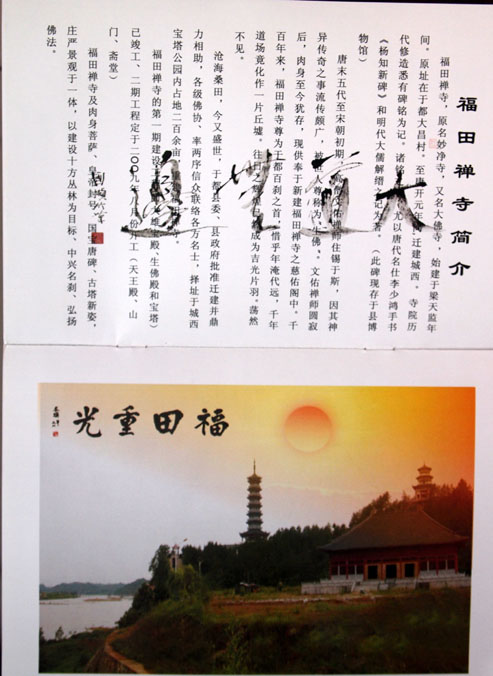 福田禅寺简介
福田禅寺，原名妙净寺，又名大佛寺，始建于梁天监年
间。原址在于都大昌村。至唐开元年间迁建城西。寺院历
代修造悉有碑铭为记。诸铭尤以唐代名仕李少鸿手书
《杨知新碑》和明代大儒解缙之记为著。（此碑现存于县博
物馆）
唐末五代至宋朝初期，文佑禅师住锡于斯，因其神
异传奇之事流传颇广，被世人尊称为“生佛”。文佑禅师圆寂
后，肉身至今犹存，现供奉于新建福田禅寺之慈佑阁中。千
百年来，福田禅寺尊为于都百刹之首，惜乎年淹代远，千年
道场竟化作一片丘墟。往日之辉煌已然成为吉光片羽。荡然
不见。
沧海桑田，今又盛世，于都县委、县政府批准迁建并鼎
力相助，各级佛协、率两序信众联络各方名士，择址于城西
宝塔公园内占地二百余亩
福田禅寺的第一期建设殿、生佛殿和宝塔）
已竣工、二期工程定于二00九年八月份开工（天王殿、山
门、斋堂）
福田禅寺及肉身菩萨、封号、国宝唐碑、古塔新姿，
庄严景观于一体，以建设十方丛林为目标、中兴名刹、弘扬
佛法。
大
福田重光